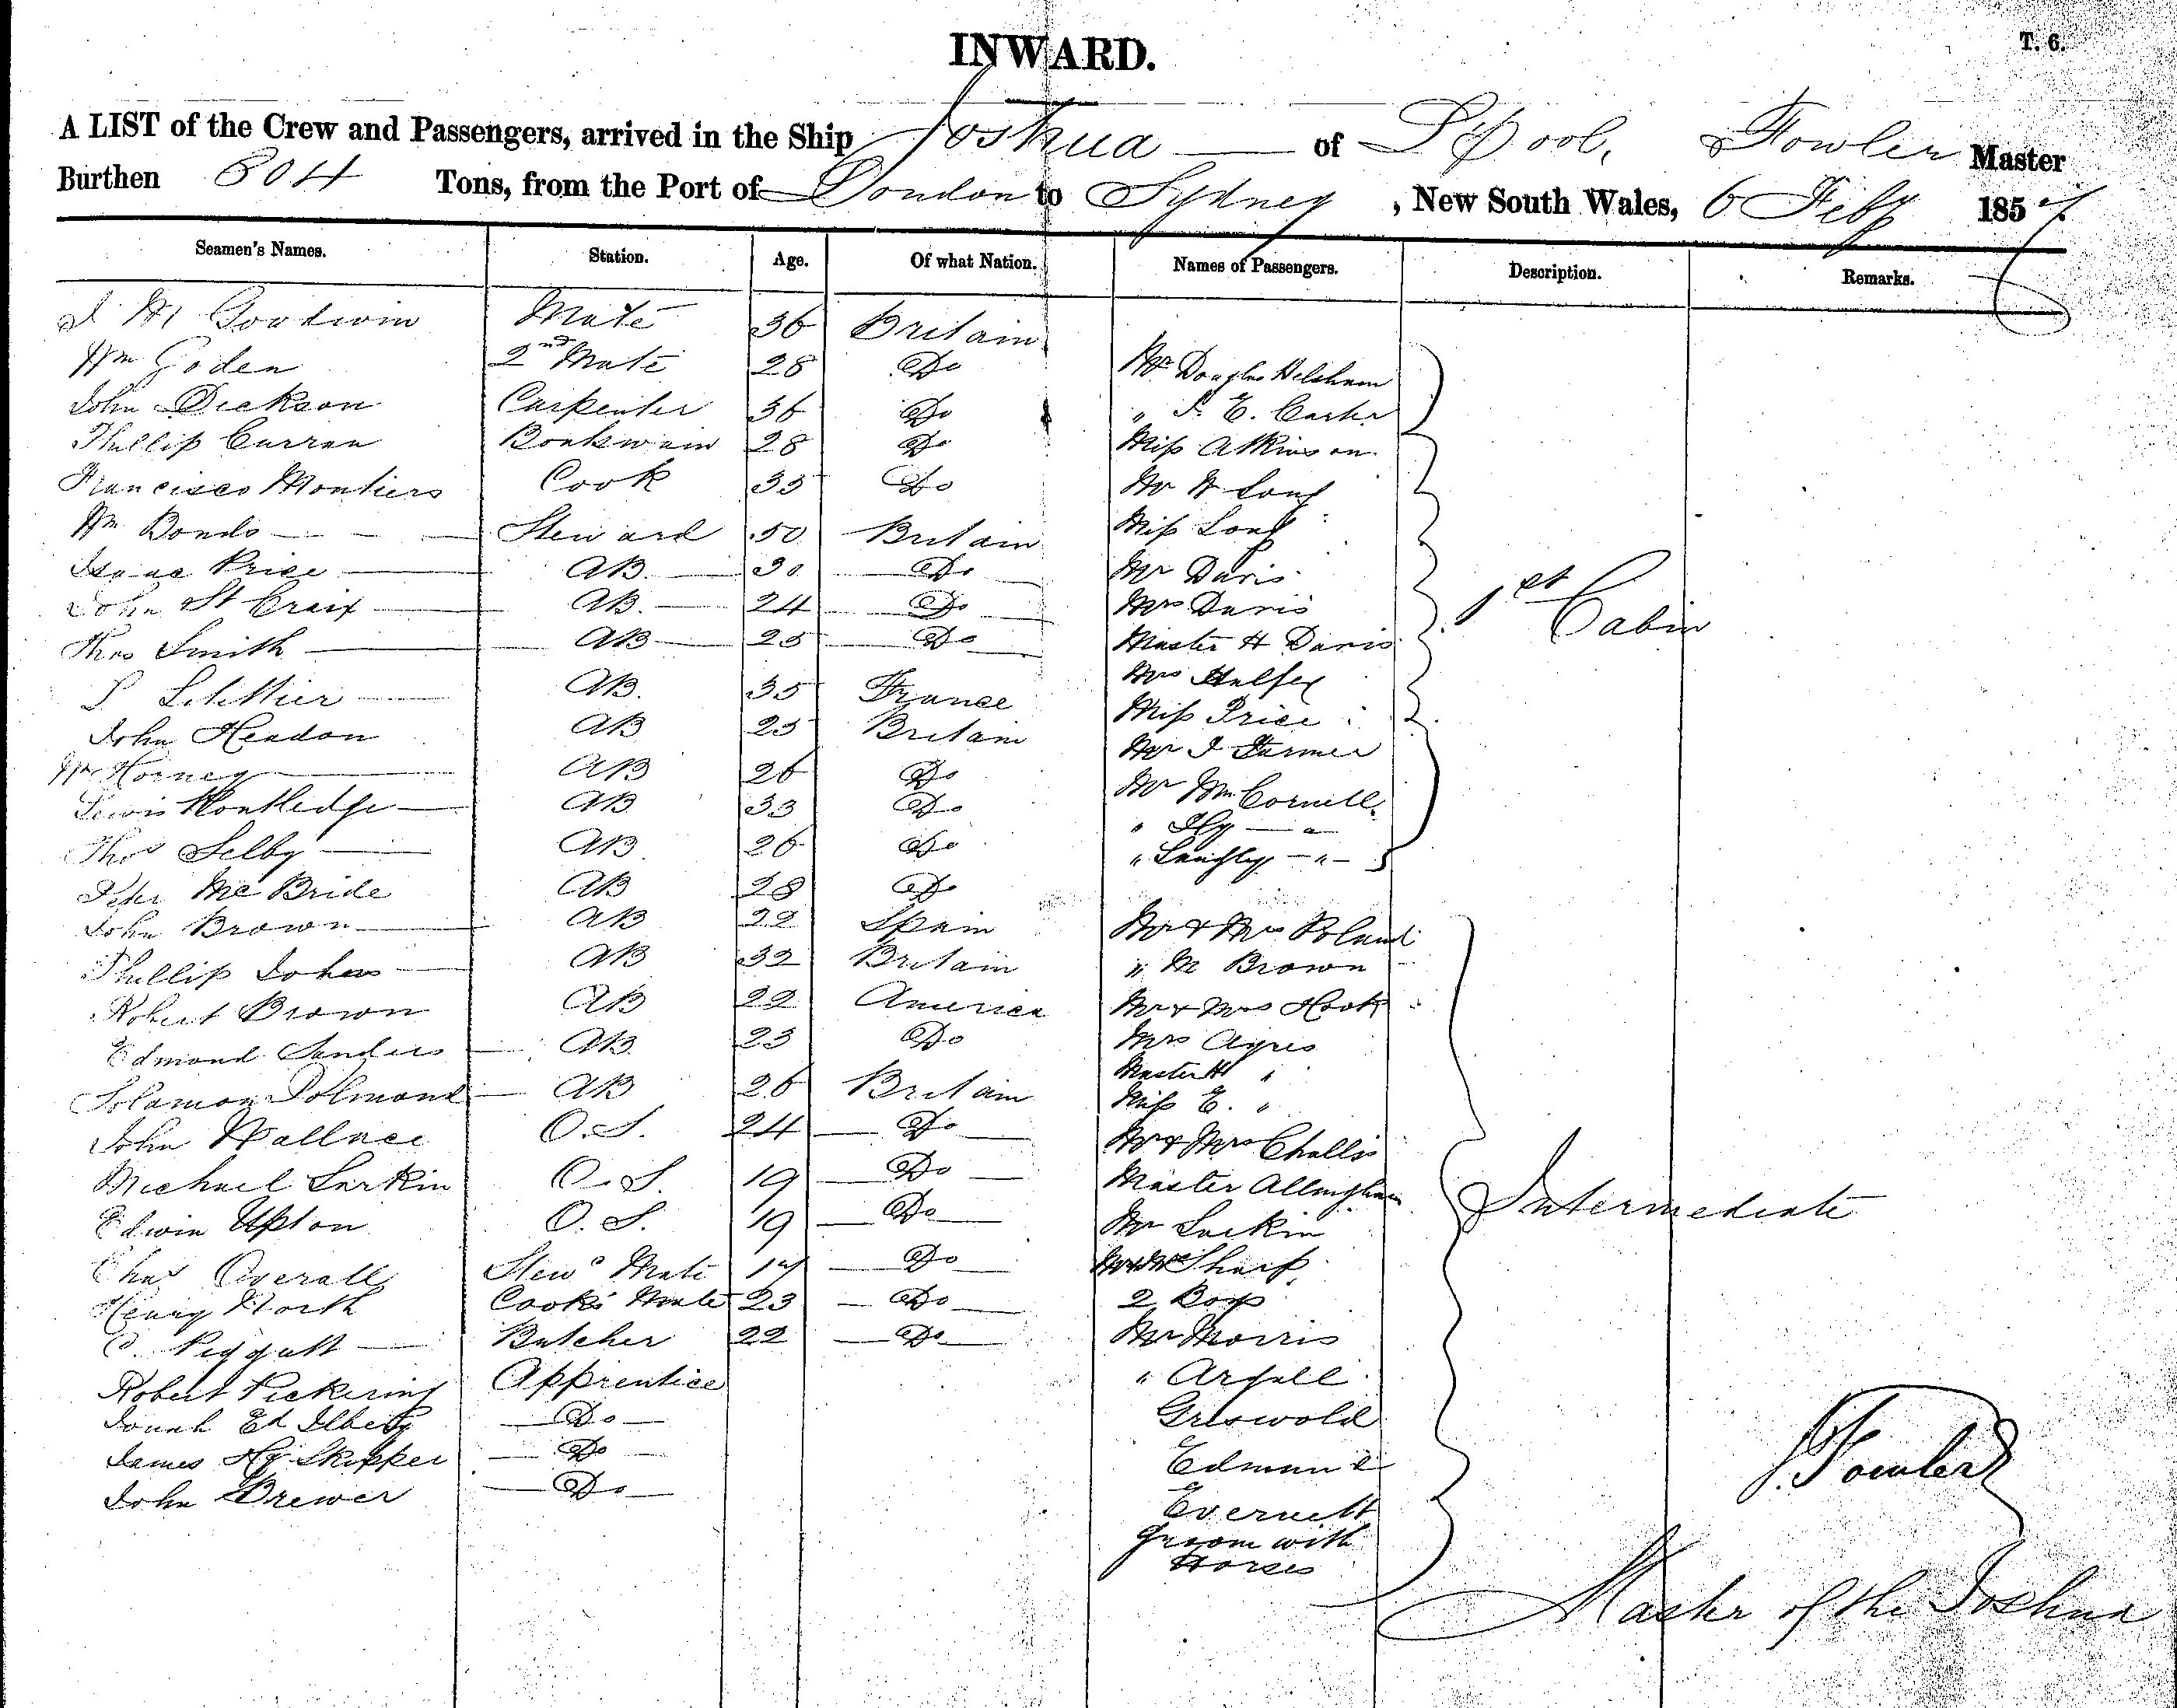 INWARD.
T. 6.
A LIST of the Crew and Passengers, arrived in the Ship Joshua of L'pool, Fowler Master
Burthen 804 Tons, from the Port of London to Sydney, New South Wales, 6 Feby 1857
Seamen's Names. Station. Age. Of what Nation. Names of Passengers. Description. Remarks.
Goodwin Mate 36 Britain
Wm Goden 2nd Mate 28 Do Mr Douglas Helsham
John Dickson Carpenter 36 Do " Carter
Phillip Curren 28 Do Miss Atkinson
Francisco Cook 33 Do Mr W Long
Wm Bonds Steward 50 Britain Miss Long
Isaac Price AB. 30 Do Mr Davis
John St Croix AB. 24 Do Mrs Davis 1st Cabin
Thos Smith AB 25 Do Master H Davis
AB. 35 France Mrs
John Headon AB 25 Britain Miss Price
Wm Horney AB 26 Do Mr J Farmer
Lewis Routledge AB 33 Do Mr Wm Cornell
" Hy — " —
Thos Selby AB 26 Do
Peter McBride AB 28 Do
John Brown AB 22 Spain Mr & Mrs Poland
Phillip Johns AB 32 Britain " M Brown
Robert Brown AB 22 America Mr & Mrs Hook
Edmond Sanders AB 23 Do Mrs Ayres
Master H "
AB 26 Britain Miss E. "
John Wallace O.S. 24 Do Mr & Mrs Challis
Michael Larkin O.S. 19 Do Master Allingham
Edwin Upton O.S. 19 Do Mr Larkin Intermediate
Chas Overall Stewd Mate 17 Do Sharp
Henry North Cooks Mate 23 Do 2 Boys
Piggott Butcher 22 Do Mr Morris
Robert Pickering Apprentice "
Do Griswold
James Hy Skipper Do Edmund
John Brewer Do
Groom with
Horses
J. Fowler
Master of the Joshua